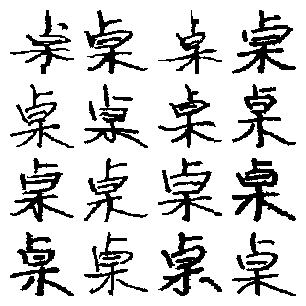 桌桌桌桌
桌桌桌桌
桌桌桌桌
桌桌桌桌